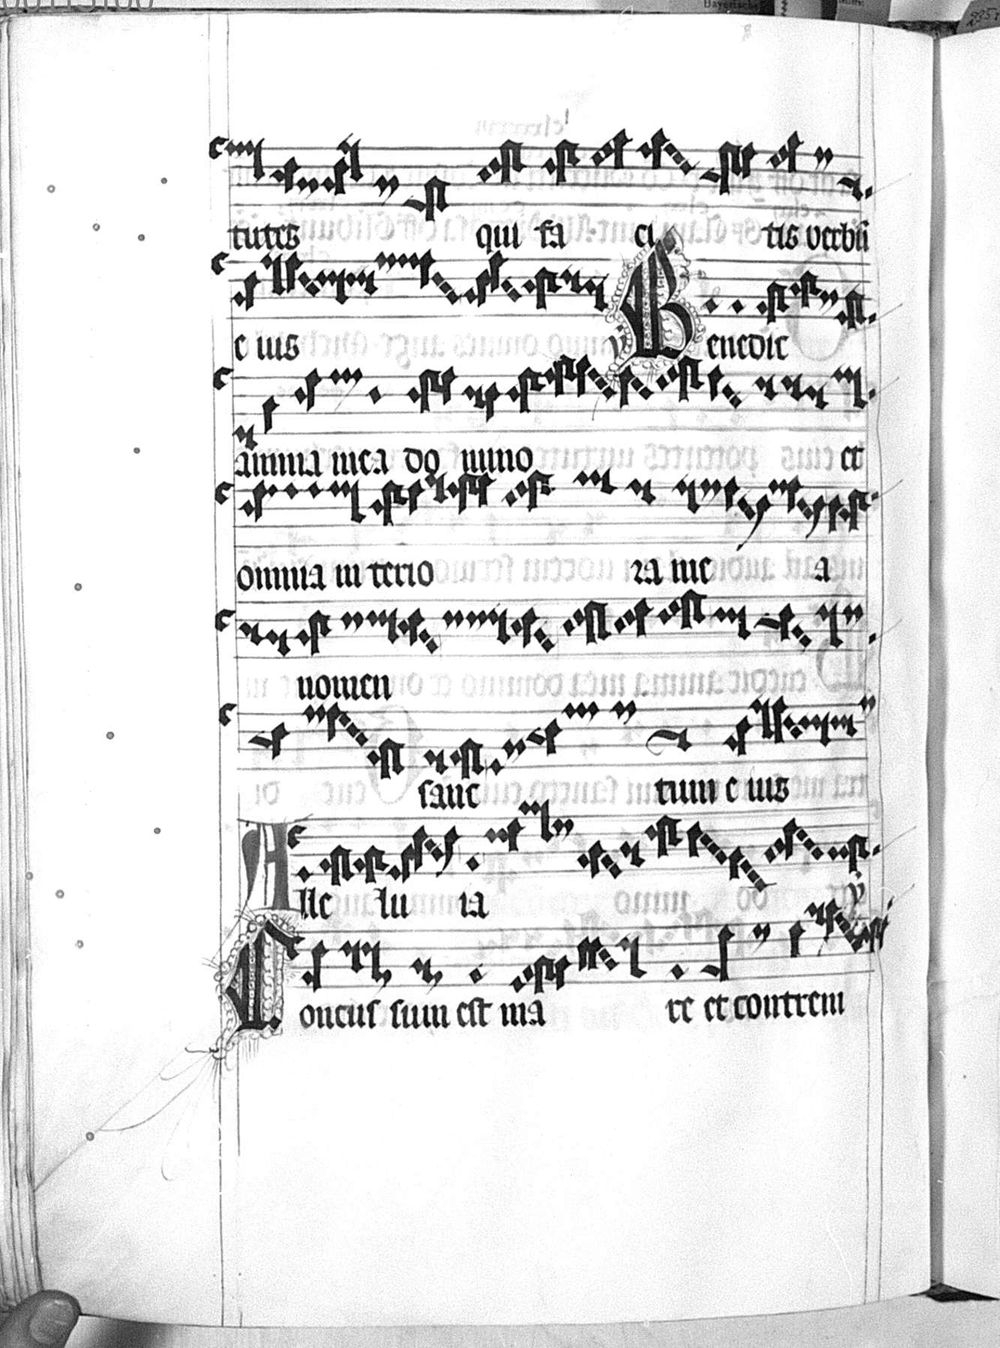 tutes qui fa ci tis verbū
e ius ꝟ Benedic
aīma mea do mino et
omnia in terio ra me a
nomen
sanc tum e ius
Alle lu ia ꝟ
Concussum est ma re et contrem